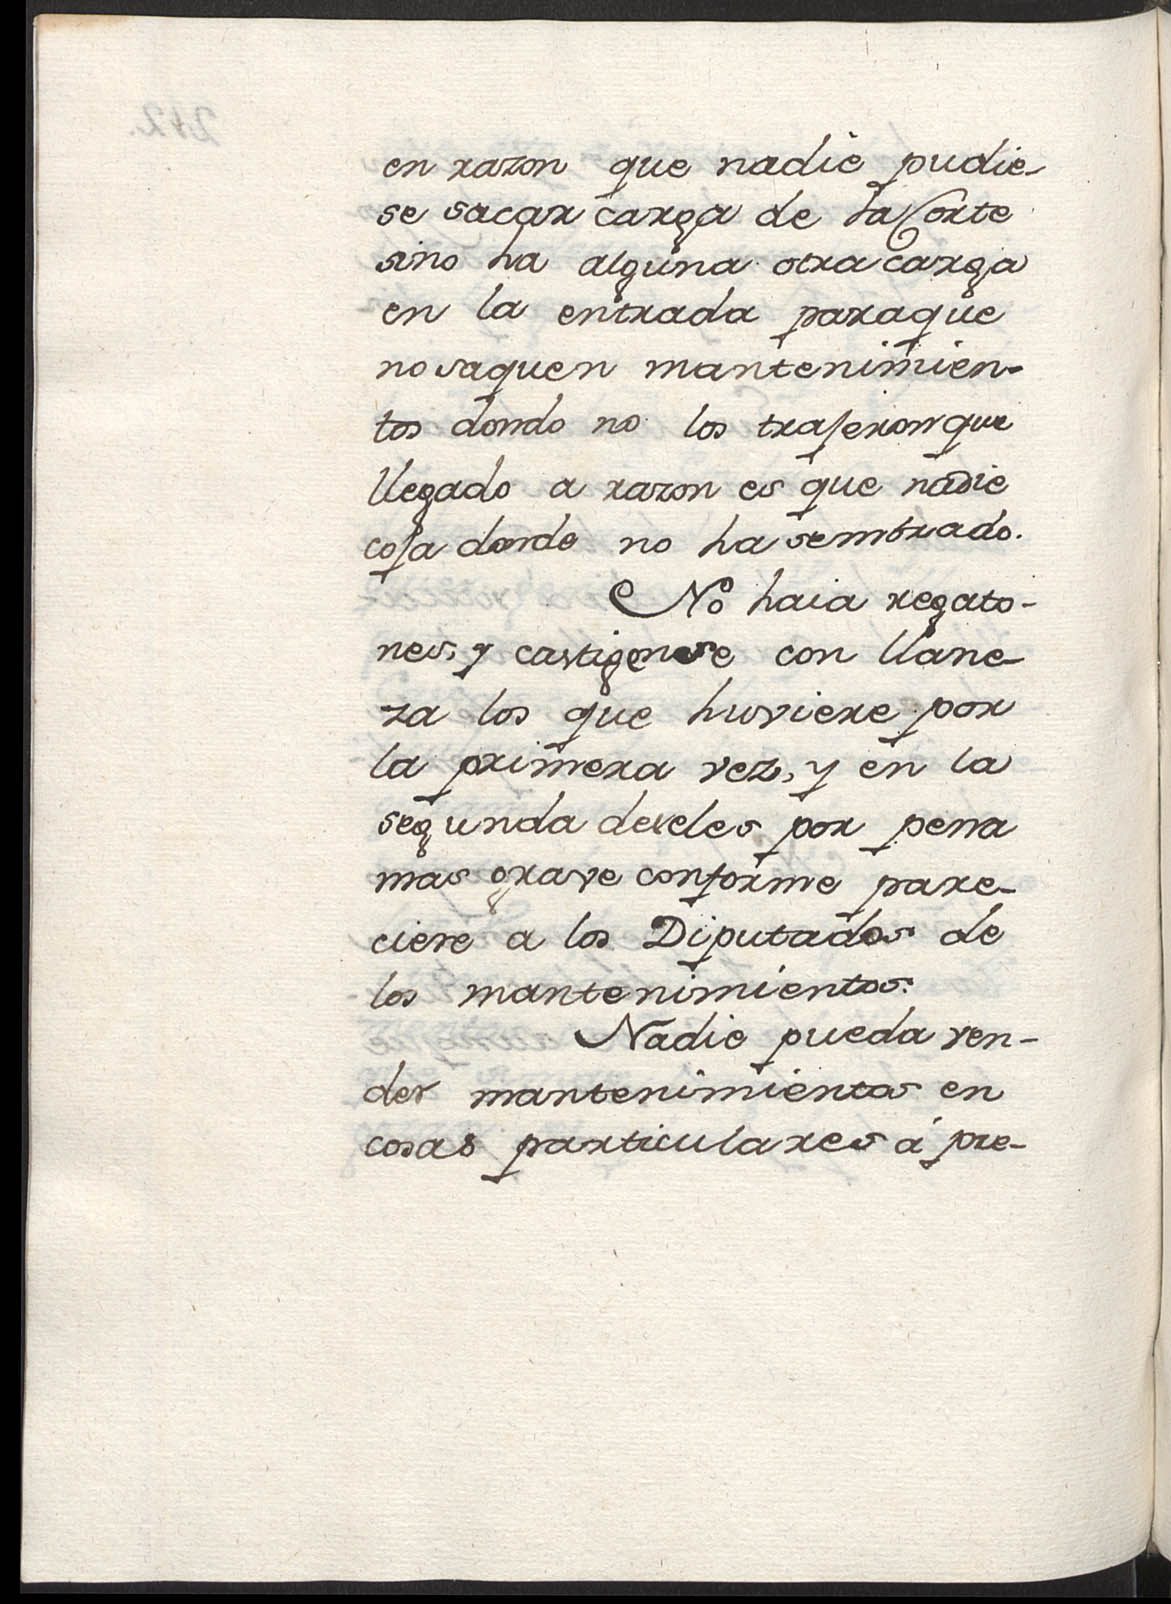 en razon que nadie pudie-
se sacar carga de la Corte
sino ha alguna otra carga
en la entrada paraque
no saquen mantenimien-
tos dondo no los trajeron que
llegado a razon es que nadie
coja donde no ha sembrado.
No haia regato-
nes, y castigense con llane-
za los que huviere por
la primera vez, y en la
segunda deseles por pena
mas grave conforme pare-
ciere a los Diputados de
los mantenimientos.
Nadie pueda ven-
der mantenimientos en
cosas particulares á pre-